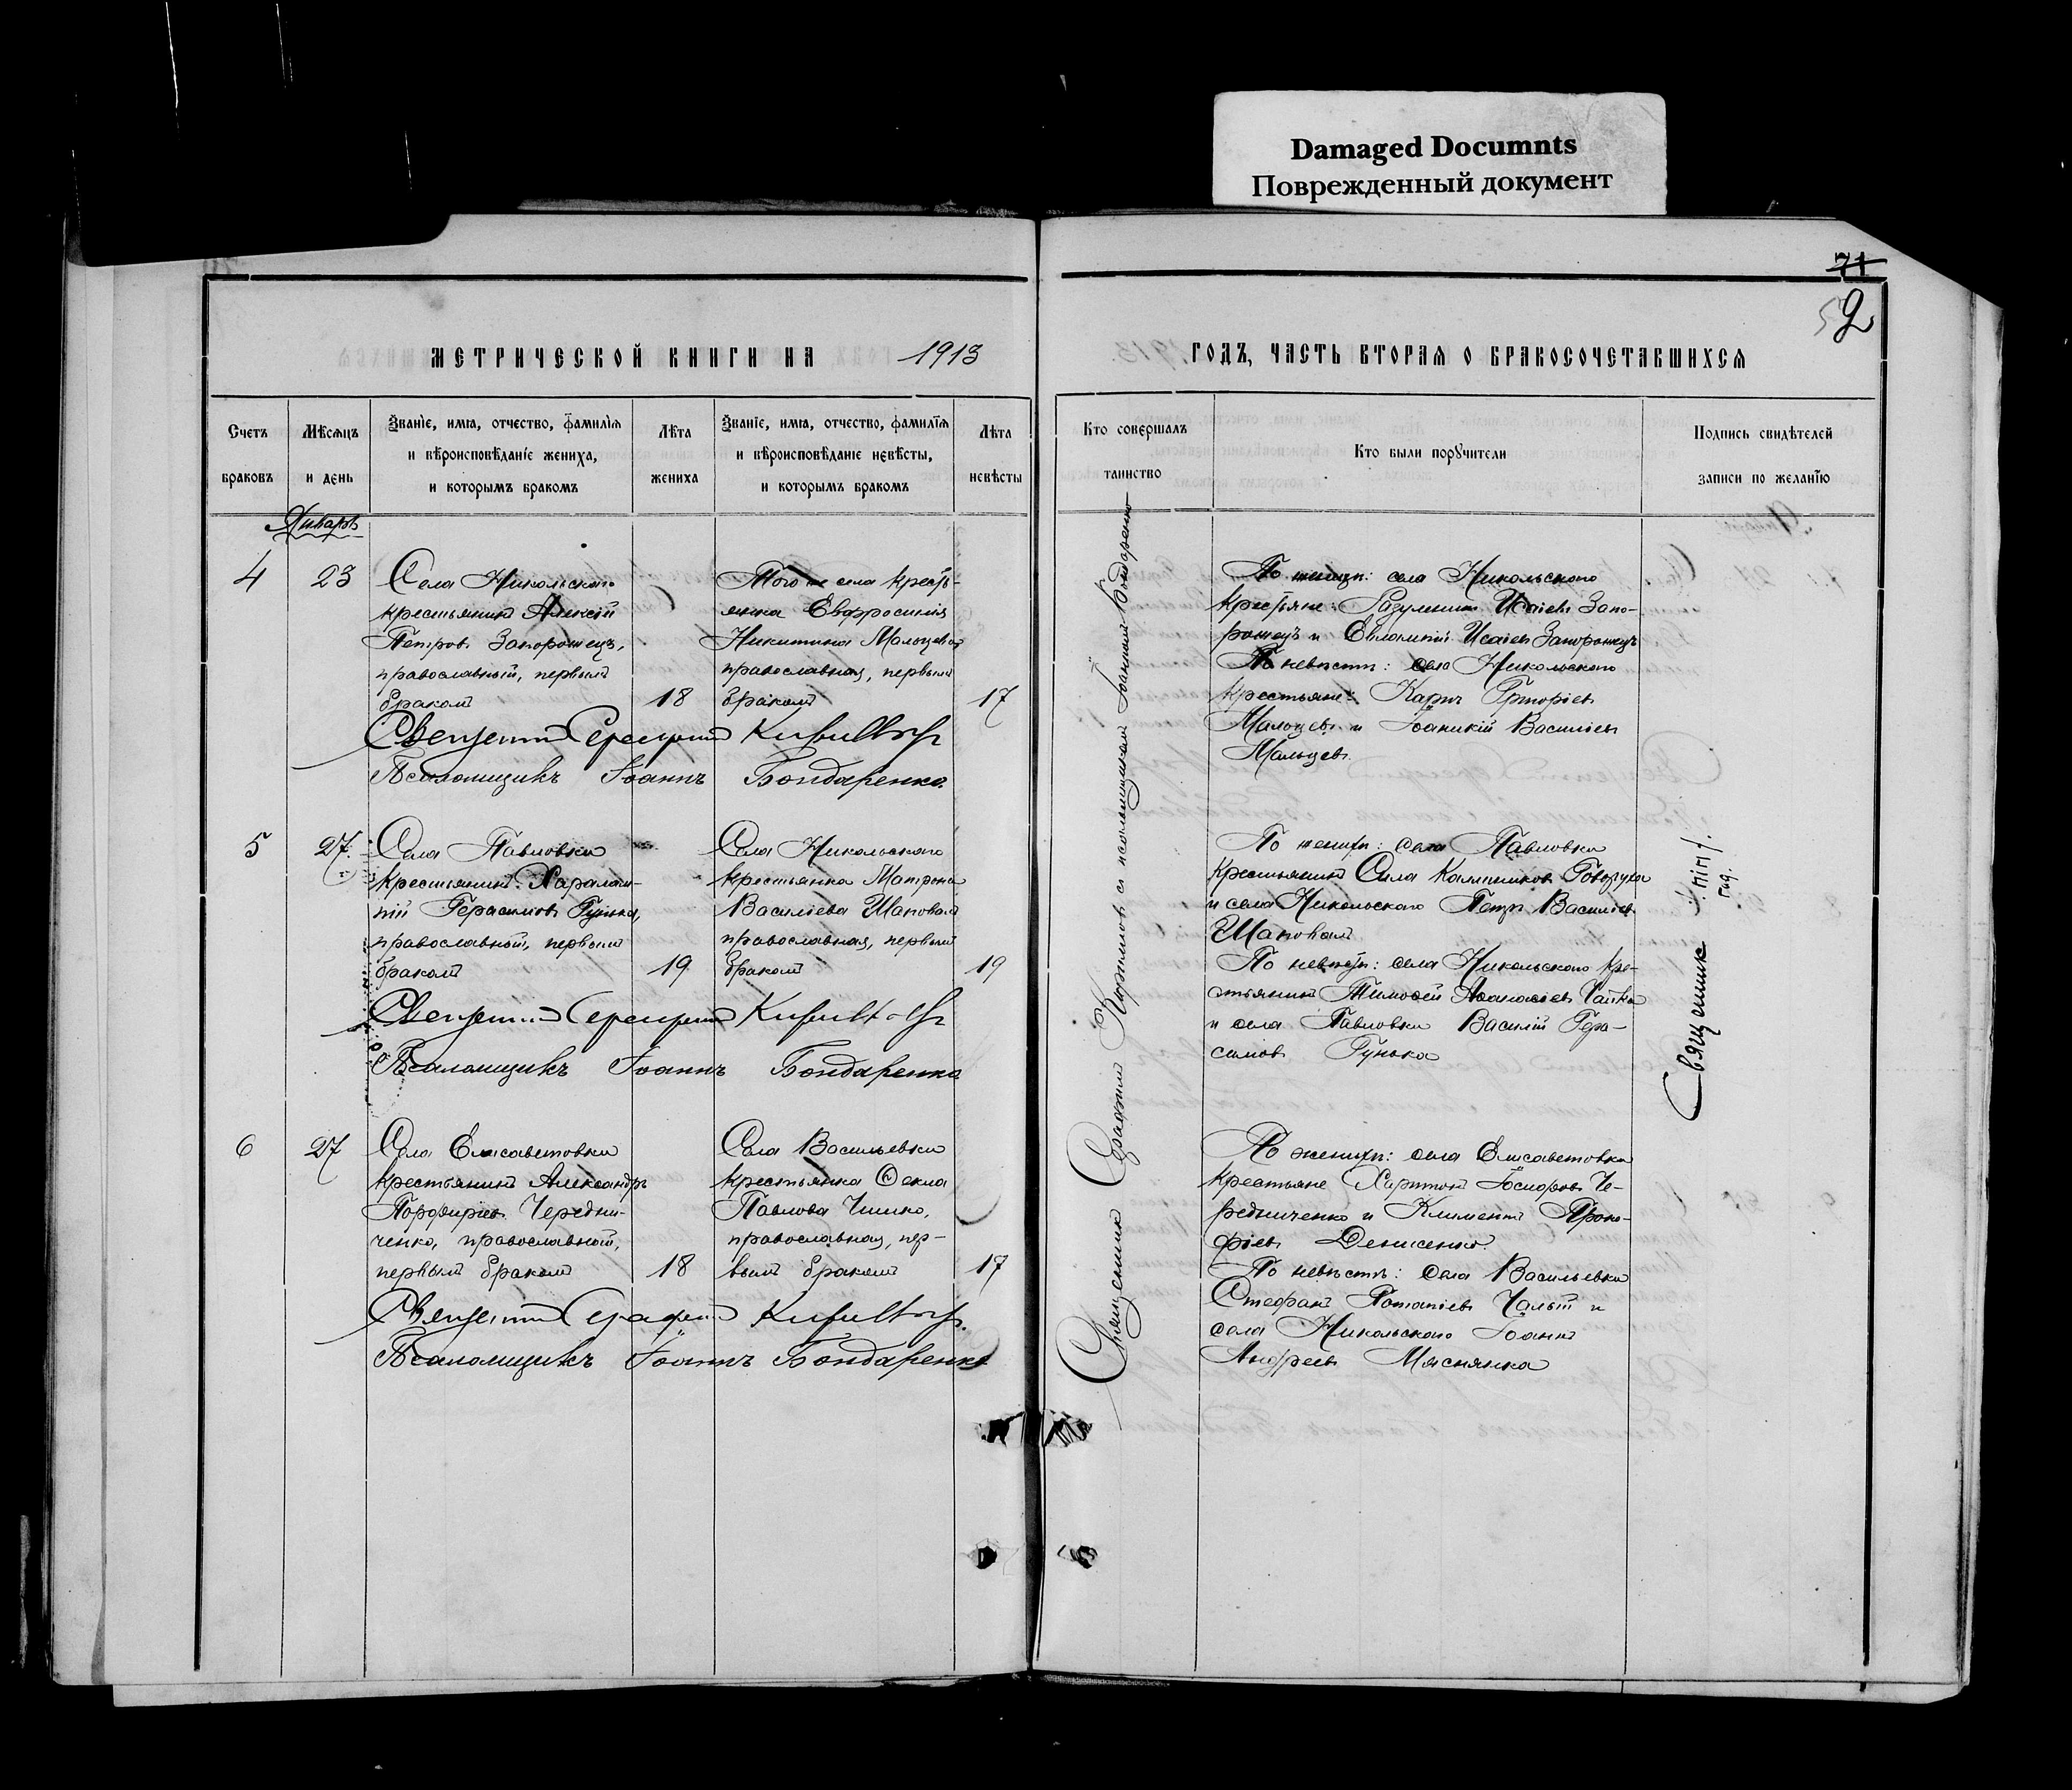 Damaged Documnts
Поврежденный документ
71
52
МЕТРИЧЕСКОЙ КНИГИ НА 1913
ГОДЪ, ЧАСТЬ ВТОРАЯ О БРАКОСОЧЕТАВШИХСЯ
Счетъ браковъ
Мѣсяцъ и день
Званіе, имя, отчество, фамилія и вѣроисповѣданіе жениха, и которымъ бракомъ
Лѣта жениха
Званіе, имя, отчество, фамилія и вѣроисповѣданіе невѣсты, и которымъ бракомъ
Лѣта невѣсты
Кто совершалъ таинство
Кто были поручители
Подпись свидѣтелей записи по желанію
Январь
4
23
Села Никольскаго
крестьянинъ Алексій
Петровъ Запорожецъ,
православный, первымъ
бракомъ
18
Того же села кресть-
янка Евфросинія
Никитина Мальцева
православная, первымъ
бракомъ
17
Священникъ Серафимъ
Псаломщикъ Іоаннъ Бондаренко
5
27
Села Павловки
крестьянинъ Харалам-
пій Герасимовъ Гунька,
православный, первымъ
бракомъ
19
Села Никольскаго
крестьянка Матрона
Василіева Шаповалъ
православная, первымъ
бракомъ
19
Священникъ Серафимъ
Псаломщикъ Іоаннъ Бондаренко
6
27
Села Елисаветовки
крестьянинъ Александръ
Порфиріевъ Чередни-
ченко, православный,
первымъ бракомъ
18
Села Васильевки
крестьянка Ѳекла
Павлова Чишко,
православная, пер-
вымъ бракомъ
17
Священникъ Серафимъ
Псаломщикъ Іоаннъ Бондаренко
Священникъ Серафимъ съ псаломщикомъ Іоанномъ Бондаренко
По женихѣ: села Никольскаго
крестьяне: Разумникъ Исаіевъ Запо-
рожецъ и Евлампій Исаіевъ Запорожецъ
По невѣстѣ: села Никольскаго
крестьяне: Карпъ Григоріевъ
Мальцевъ и Іоаникій Василіевъ
Мальцевъ.
По женихѣ: села Павловки
крестьянинъ Сила Говоруха
и села Никольскаго Петръ Василіевъ
Шаповалъ
По невѣстѣ: села Никольскаго кре-
стьянинъ Тимоѳей Аѳанасіевъ Чайка
и села Павловки Василій Гера-
симовъ Гунька
По женихѣ: села Елисаветовки
крестьяне Харитонъ Іосифовъ Че-
редниченко и Климентъ Проко-
фіевъ Денисенко.
По невѣстѣ: села Васильевки
Стефанъ Потапіевъ Чалый и
села Никольскаго Іоаннъ
Андреевъ Мяснянка
Священник